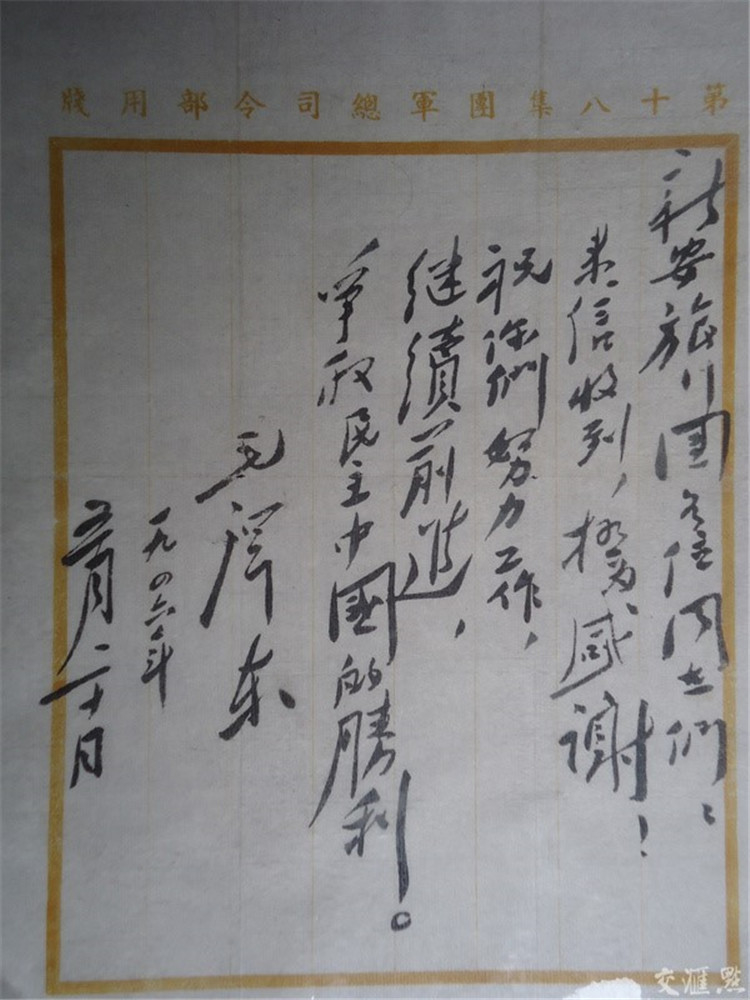 第十八集團軍總司令部用牋
新安旅行團各位同志們：
来信收到，極为感謝！
祝你們努力工作，
继續前進，
爭取民主中國的勝利。
毛澤东
一九四六年
五月二十日
交滙點